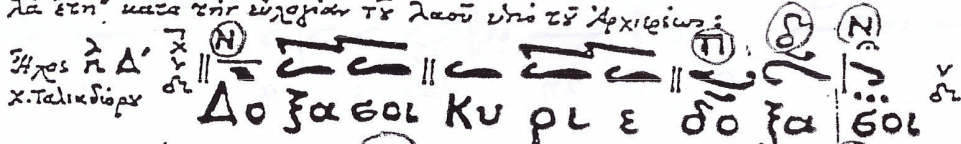 λὰ ἔτη, κατὰ τὴν εὐλογίαν τοῦ λαοῦ ὑπὸ τοῦ Ἀρχιερέως:
Ν π δ Ν
Ἦχος λ π Δ΄ ν δι
χ. Ταλιαδώρου
Δο ξα σοι Κυ ρι ε δο ξα σοι